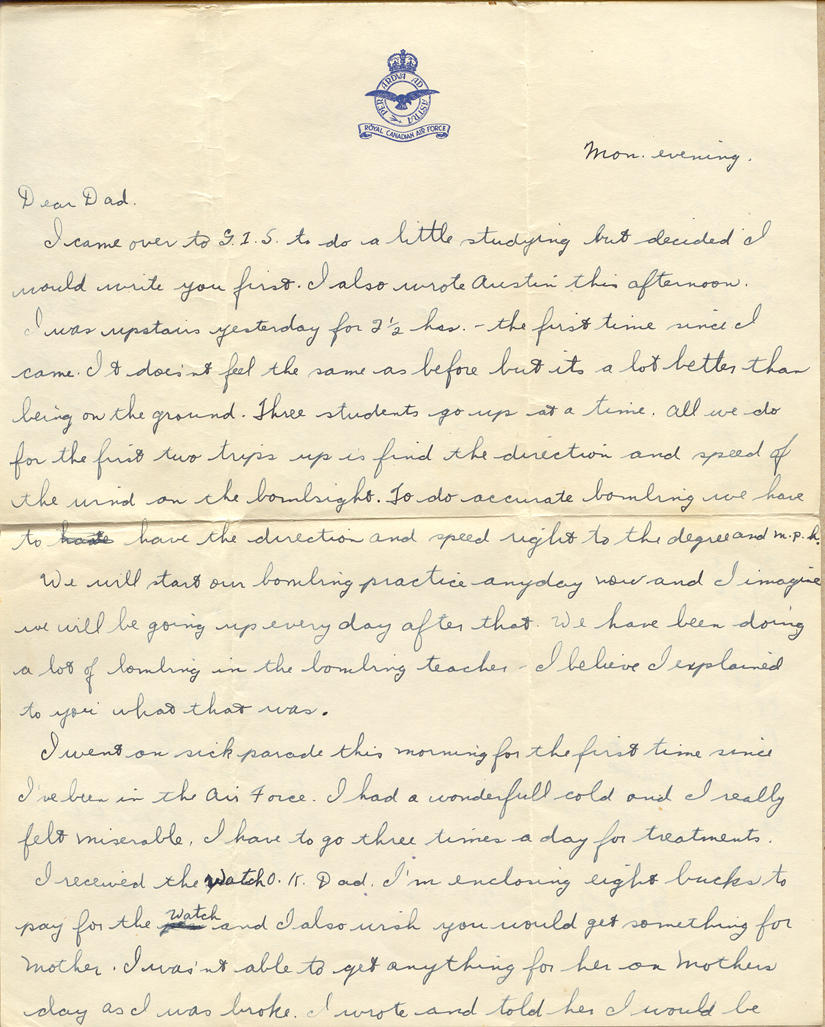 PER ARDVA AD ASTRA
ROYAL CANADIAN AIR FORCE
Mon. evening.
Dear Dad.
I came over to G.I.S. to do a little studying but decided I
would write you first. I also wrote Austin this afternoon.
I was upstairs yesterday for 2½ hrs. - the first time since I
came. It does'nt feel the same as before but its a lot better than
being on the ground. Three students go up at a time. All we do
for the first two trips up is find the direction and speed of
the wind on the bombsight. To do accurate bombing we have
to have the direction and speed right to the degree and m.p.h.
We will start our bombing practice anyday now and I imagine
we will be going up every day after that. We have been doing
a lot of bombing in the bombing teacher - I believe I explained
to you what that was.
I went on sick parade this morning for the first time since
I've been in the Air Force. I had a wonderfull cold and I really
felt miserable. I have to go three times a day for treatments.
I received the watch O.K. Dad. I'm enclosing eight bucks to
pay for the watch and I also wish you would get something for
Mother. I was'nt able to get anything for her on Mothers
day as I was broke. I wrote and told her I would be